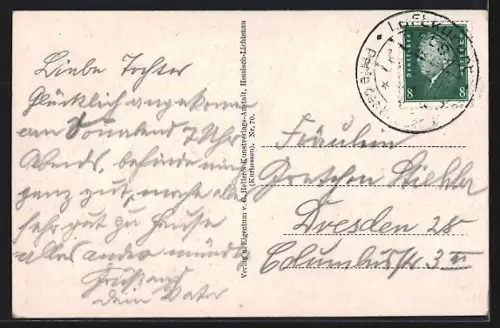 Liebe Tochter
Glücklich angekommen
am Sonnabend 7 Uhr
Abends, befinde mich
ganz gut, mache alles
sehr gut zu Hause
alles andre mündl.
Grüßend
Dein Vater
Verlag u. Eigentum v. C. Heller's Kunstverlags-Anstalt, Hessisch-Lichtenau
(Kurhessen). Nr. 70.
DEUTSCHES REICH
8 8
Fräulein
Gretchen Stiehler
Dresden 28
Columbusstr 3 III